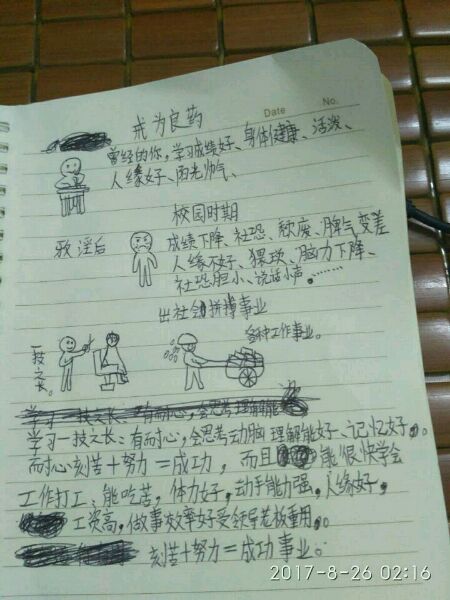 Date No.
戒为良药
曾经的你,学习成绩好、身体健康、活泼、
人缘好、雨光帅气、
校园时期
邪淫后
成绩下降、社恐、颓废、脾气变差
人缘不好、猥琐、脑力下降、
社恐胆小、说话小声。……
出社会拼搏事业
一技之长。
各种工作事业。
学习一技之长:有耐心,会思考理解能
学习一技之长:有耐心,会思考动脑 理解能好、记忆好。
耐心刻苦+努力=成功,而且能很快学会
工作打工:能吃苦,体力好,动手能力强,人缘好,
工资高,做事效率好受领导老板重用。
刻苦+努力=成功事业。
2017-8-26 02:16